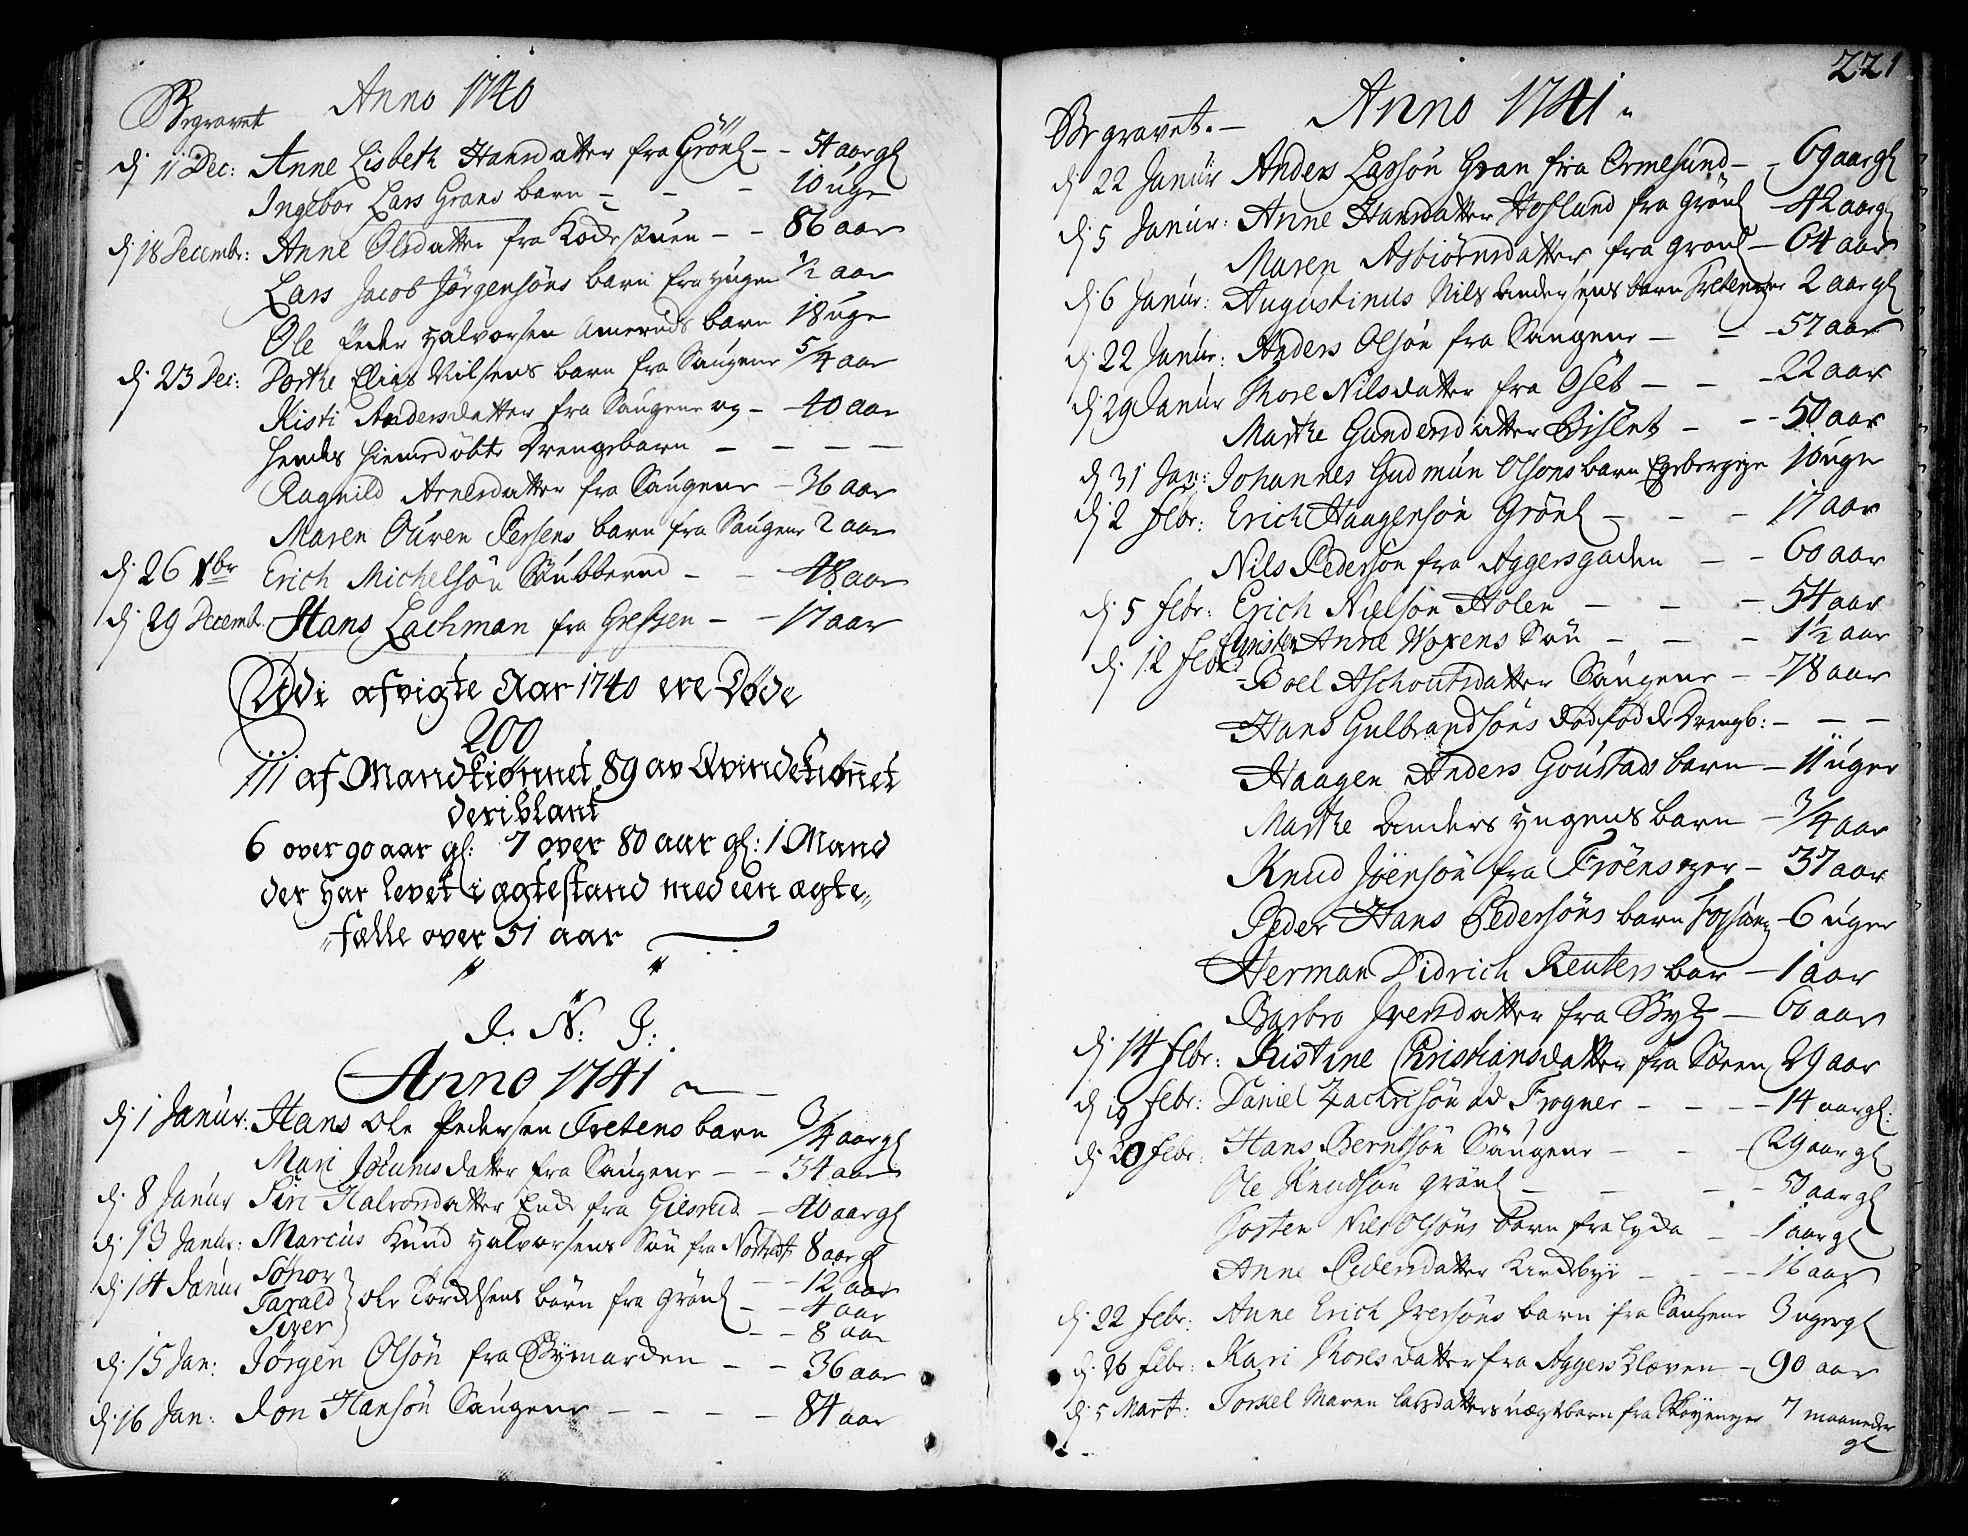 Anno 1740
Begravet
dj 11 Dec: Anne Lisbeth Hansdatter fra Grönl - - 54 aar gl
Ingebor Lars Grans barn - - - 10 uge
dj 18 Decembr: Anne Olsdatter fra - - 86 aar
Lars Jacob Jörgensöns barn fra 1/2 aar
Ole Peder Halvorsen Ameruds barn 18 uge
dj 23 Dec: Dorthe Elias Nilsens barn fra Saugene 5/4 aar
Kisti Andersdatter fra Saugene og - 40 aar
hendes hiemedöbte Drengebarn - - - -
Ragnild Arnesdatter fra Saugene - 36 aar
Maren Ouren Persens barn fra Saugene 2 aar
dj 26 Xbr Erich Michelsön Stubberud - - 48 aar
dj 29 Decemb. Hans Lachman fra Grefsen - - 17 aar
Udi afvigte Aar 1740 ere Døde
200
111 af Mandkiønnet, 89 av Qvindekiønnet
deriblant
6 over 90 aar gl: 7 over 80 aar gl: 1 Mand
der har levet i ægtestand med een ægte„
„fælle over 51 aar
J. N. J.
Anno 1741
dj 1 Janur: Hans Ole Pedersen Tretens barn 3/4 aar gl
Mari Jocumsdatter fra Saugene - - 34 aar
dj. 8 Janur Siri Halvorsdatter Enke fra - 40 aar gl
dj 13 Janur: Marcus Knud Halvorsens Sön fra 8 aar gl
dj 14 Janur - - 12 aar
Tarald } Ole Tordsens börn fra Grönl - - 4 aar
Siver - - 8 aar
dj. 15 Jan: Jörgen Olsön fra Bymarden - - 36 aar
dj 16 Jan: Jon Hansön Saugene - - - - 84 aar
221
Anno 1741
Begravet.-
dj 22 Janur Anders Larsön Gran fra Ormesund - - 69 aar gl
dj 5 Janur: Anne Hansdatter Hofland fra Grönl - 42 aar gl
Maren Asbiörnsdatter fra Grönl - 64 aar
dj 6 Janur: Augustinus Nils Andersens barn 2 aar gl
dj 22 Janur: Anders Olsön fra Saugene - - - 57 aar
dj 29 Janur Thore Nilsdatter fra Oset - - - 22 aar
Marthe Gundersdatter Bislet - - - 50 aar
dj 31 Jan: Johannes Gudmun Olsons barn Egebergeje 16 uge
dj 2 Febr: Erich Haagensön Grönl - - - 17 aar
Nils Pedersön fra Aggersgaden - - 60 aar
dj 5 Febr: Erich Nielsön Holen - - - 54 aar
dj. 12 Febr Christen Anne Woxens Sön - - - 1½ aar
Boel Aschoutsdatter Saugene - - 78 aar
Hans Gulbrandsöns dödföde Drengb: - - -
Haagen Anders Goustads barn - 11 uger
Marthe Anders yngens barn - 3/4 aar
Knud Joensön fra Fröens ejer - 37 aar
Peder Hans Pedersöns barn - 6 uger
Herman Didrich Reuters bar - 1 aar
Barbro Iversdatter fra - 60 aar
dj 14 Febr: Kistine Christiansdatter fra 29 aar
dj 19 Febr: Daniel Zachrisön Frogner - - - 14 aar gl:
dj 20 Febr: Hans Berntsön Saugene - - - 29 aar gl
Ole Knudsön Grönl - - - - 50 aar gl
Torsten Nils Olsöns barn fra - - 1 aar gl
Anne Pedersdatter Kirkebye - - - - 16 aar
dj 22 Febr: Anne Erich Iversöns barn fra Saugene 3 uger gl
dj. 26 Febr: Kari Thoresdatter fra Aggers Kleven - 90 aar
dj 5 Mart: Torkel Maren Larsdatters uægt barn fra 7 maaneder
gl